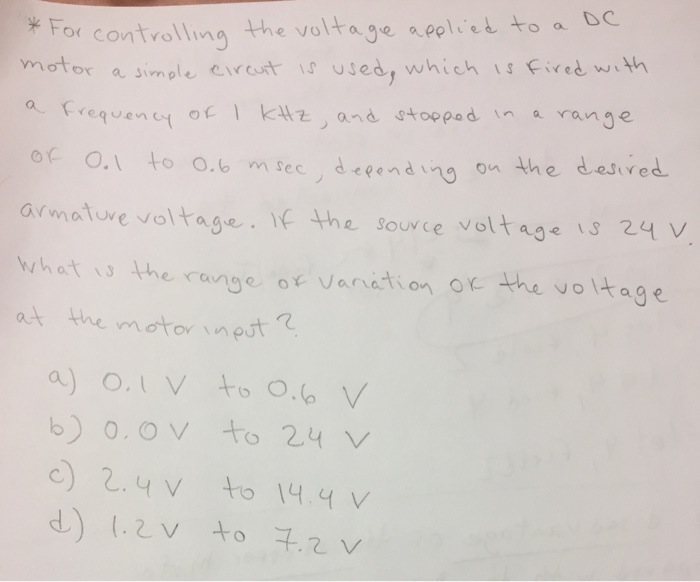 * For controlling the voltage applied to a DC
motor a simple circuit is used, which is fired with
a frequency of 1 kHz, and stopped in a range
of 0.1 to 0.6 msec, depending on the desired
armature voltage. If the source voltage is 24 V.
What is the range of variation of the voltage
at the motor input?
a) 0.1 V to 0.6 V
b) 0.0 V to 24 V
c) 2.4 V to 14.4 V
d) 1.2 V to 7.2 V